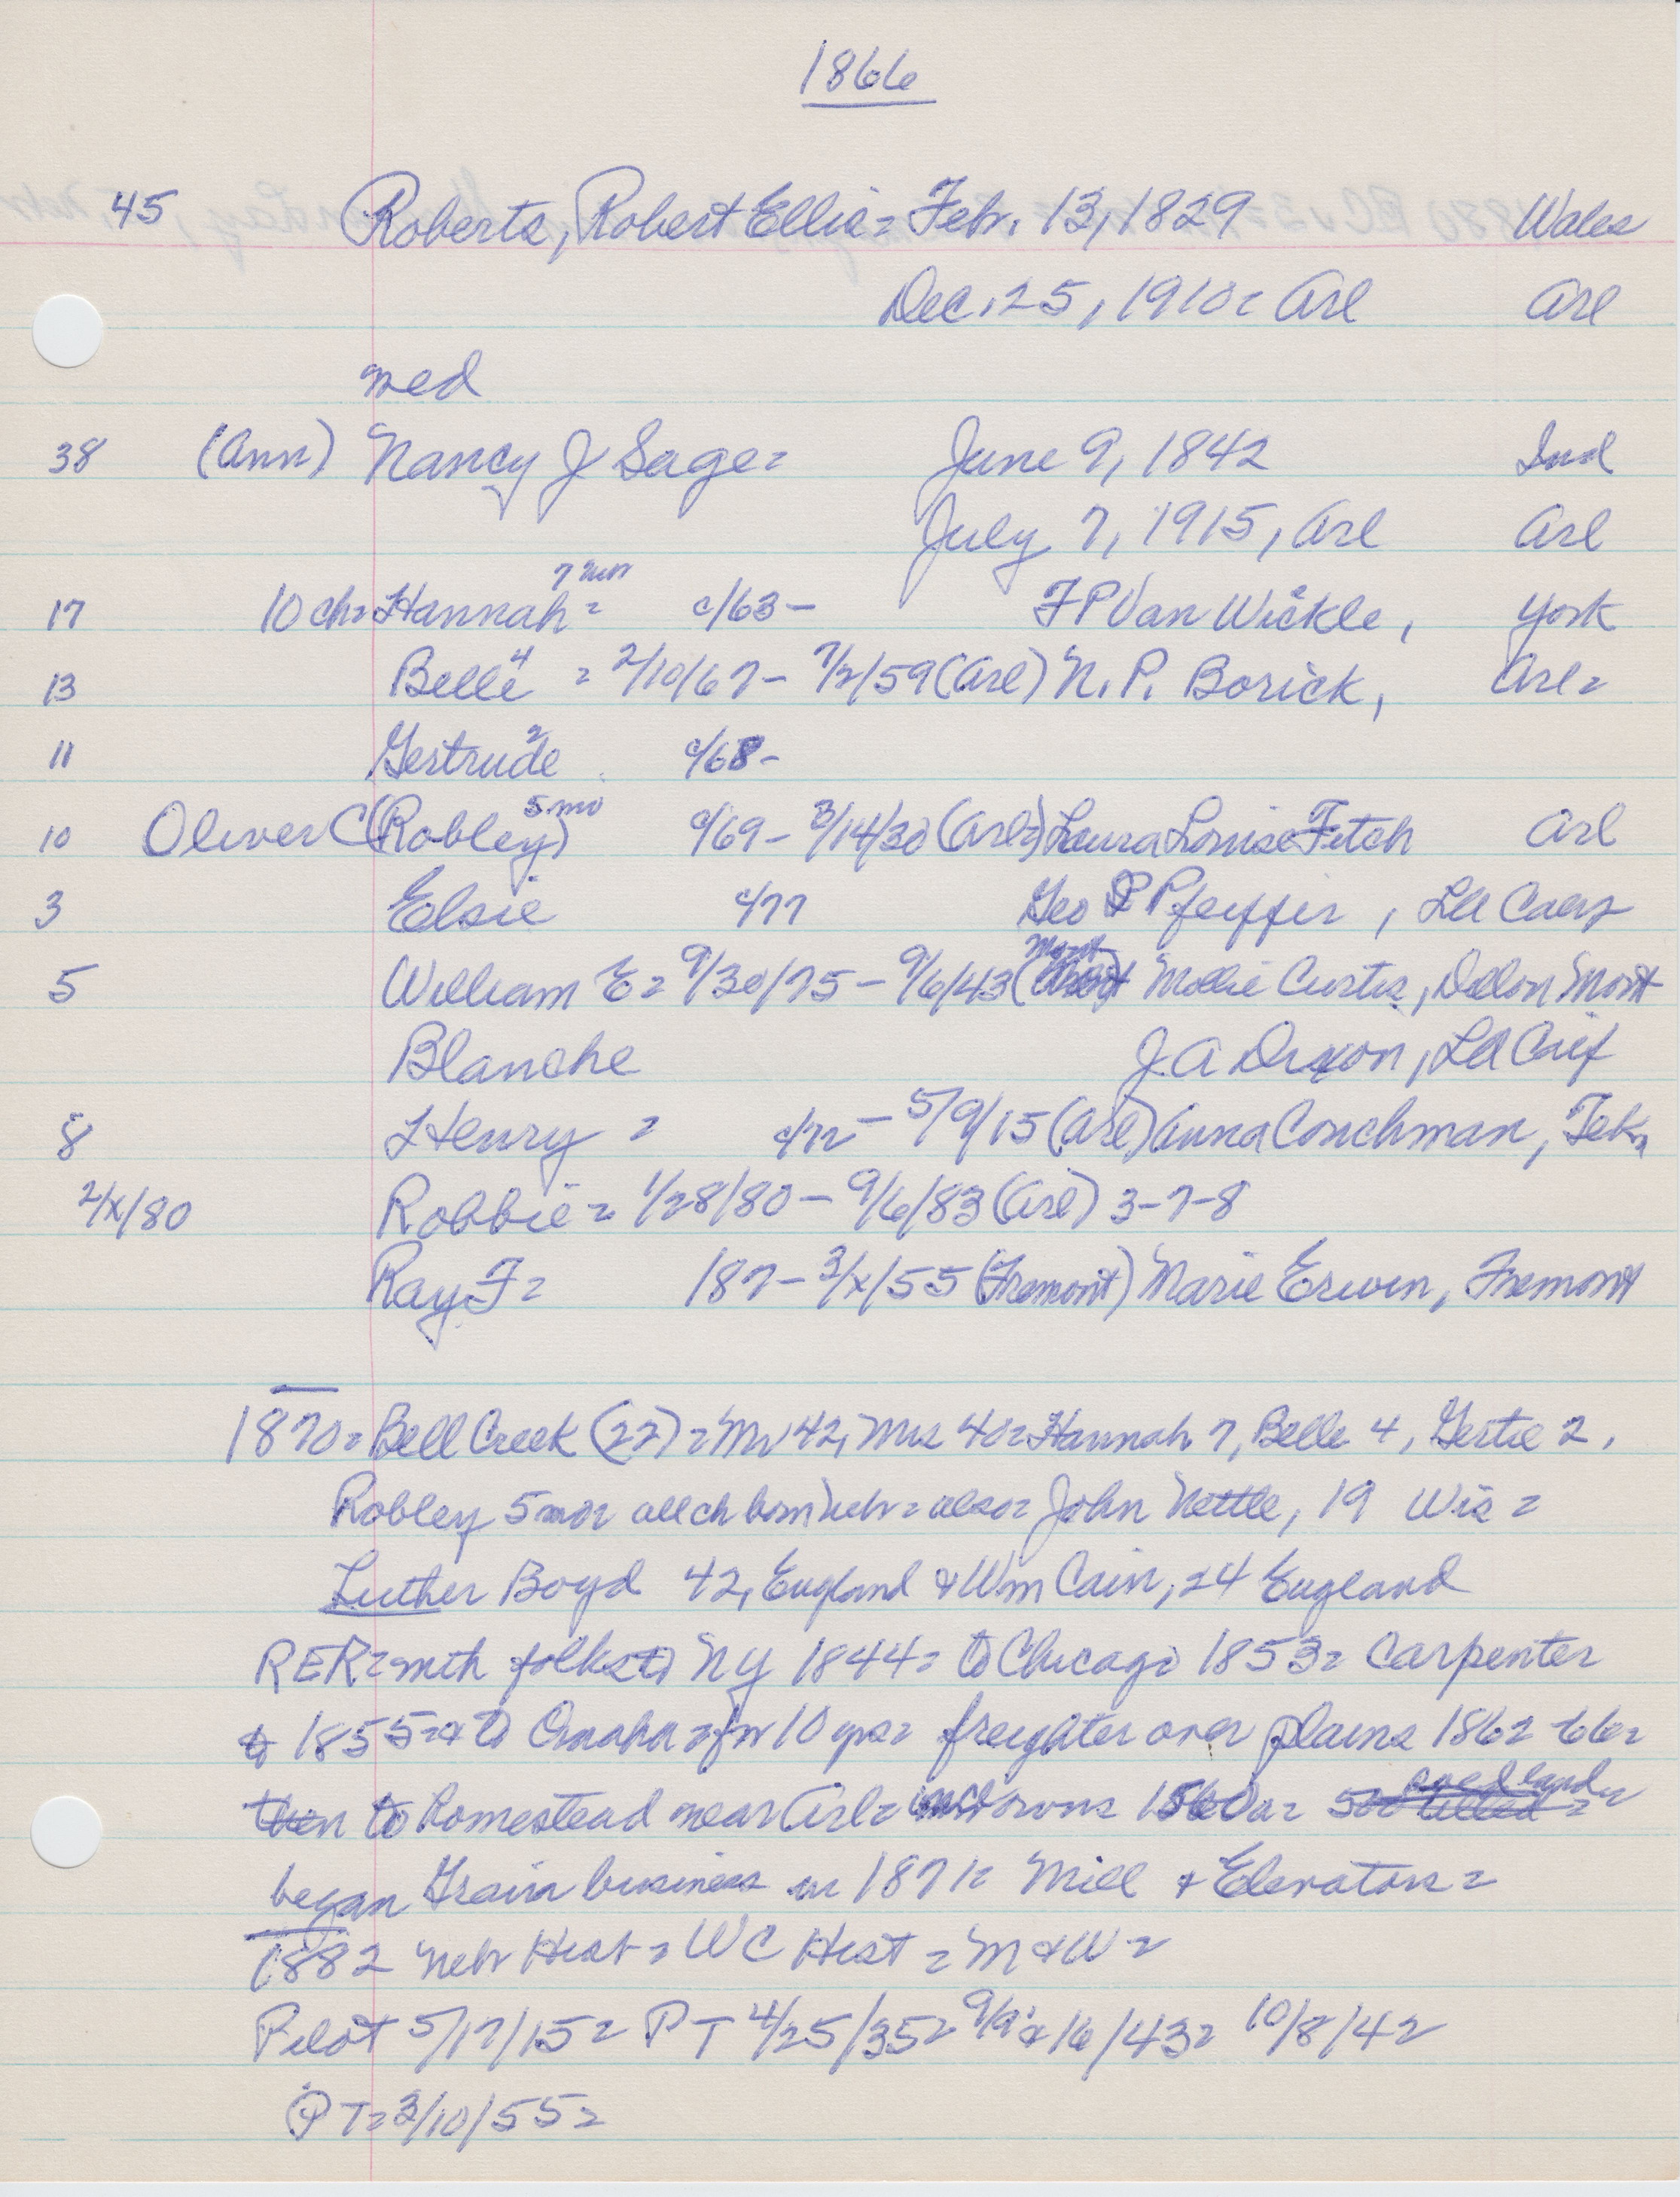 1866
45 Roberts, Robert Ellis = Feb. 13, 1829 Wales
Dec. 25, 1910 = Arl Arl
med
38 (Ann) Nancy J Sage = June 9, 1842 Ind
July 7, 1915, Arl Arl
17 10 ch = Hannah 7 = c/63 - F P Van Wickle, York
13 Belle 4 = 2/10/67 - 7/2/59 (Arl) N. P. Borick, Arl =
11 Gertrude 2 c/68 -
10 Oliver C (Robley) 5 mo c/69 - 3/14/30 (Arl =) Laura Louise Fitch Arl
3 Elsie c/77 Geo P Pfeiffer,
5 William E = 9/30/75 - 9/6/43 (Mont) Mollie Curtis, Dillon Mont
Blanche J. A Dixon,
8 Henry = c/72 - 5/9/15 (Arl) Anna Conchman, Tek
2/x/80 Robbie = 1/28/80 - 9/6/83 (Arl) 3-7-8
Ray F = 187 - 3/x/55 (Fremont) Marie Erwin, Fremont
1870 = Bell Creek (22) = Mr 42, Mrs 40 = Hannah 7, Belle 4, Gertie 2,
Robley 5 mo = all ch born Nebr = also = John Nettle, 19 Wis =
Luther Boyd 42, England & Wm Cain, 24 England
RER = with folks to NY 1844 = to Chicago 1853 = Carpenter
& 1855 = & to Omaha = for 10 yrs = freighter over plains 1862 66 =
then to homestead near Arl = owns 1560 a = 500 tilled =
began Grain business in 1871 = Mill & Elevators =
1882 Nebr Hist = WC Hist = M & W =
Pilot 5/17/15 = P T 4/25/35 = 9/9 & 16/43 = 10/8/42
P T = 3/10/55 =